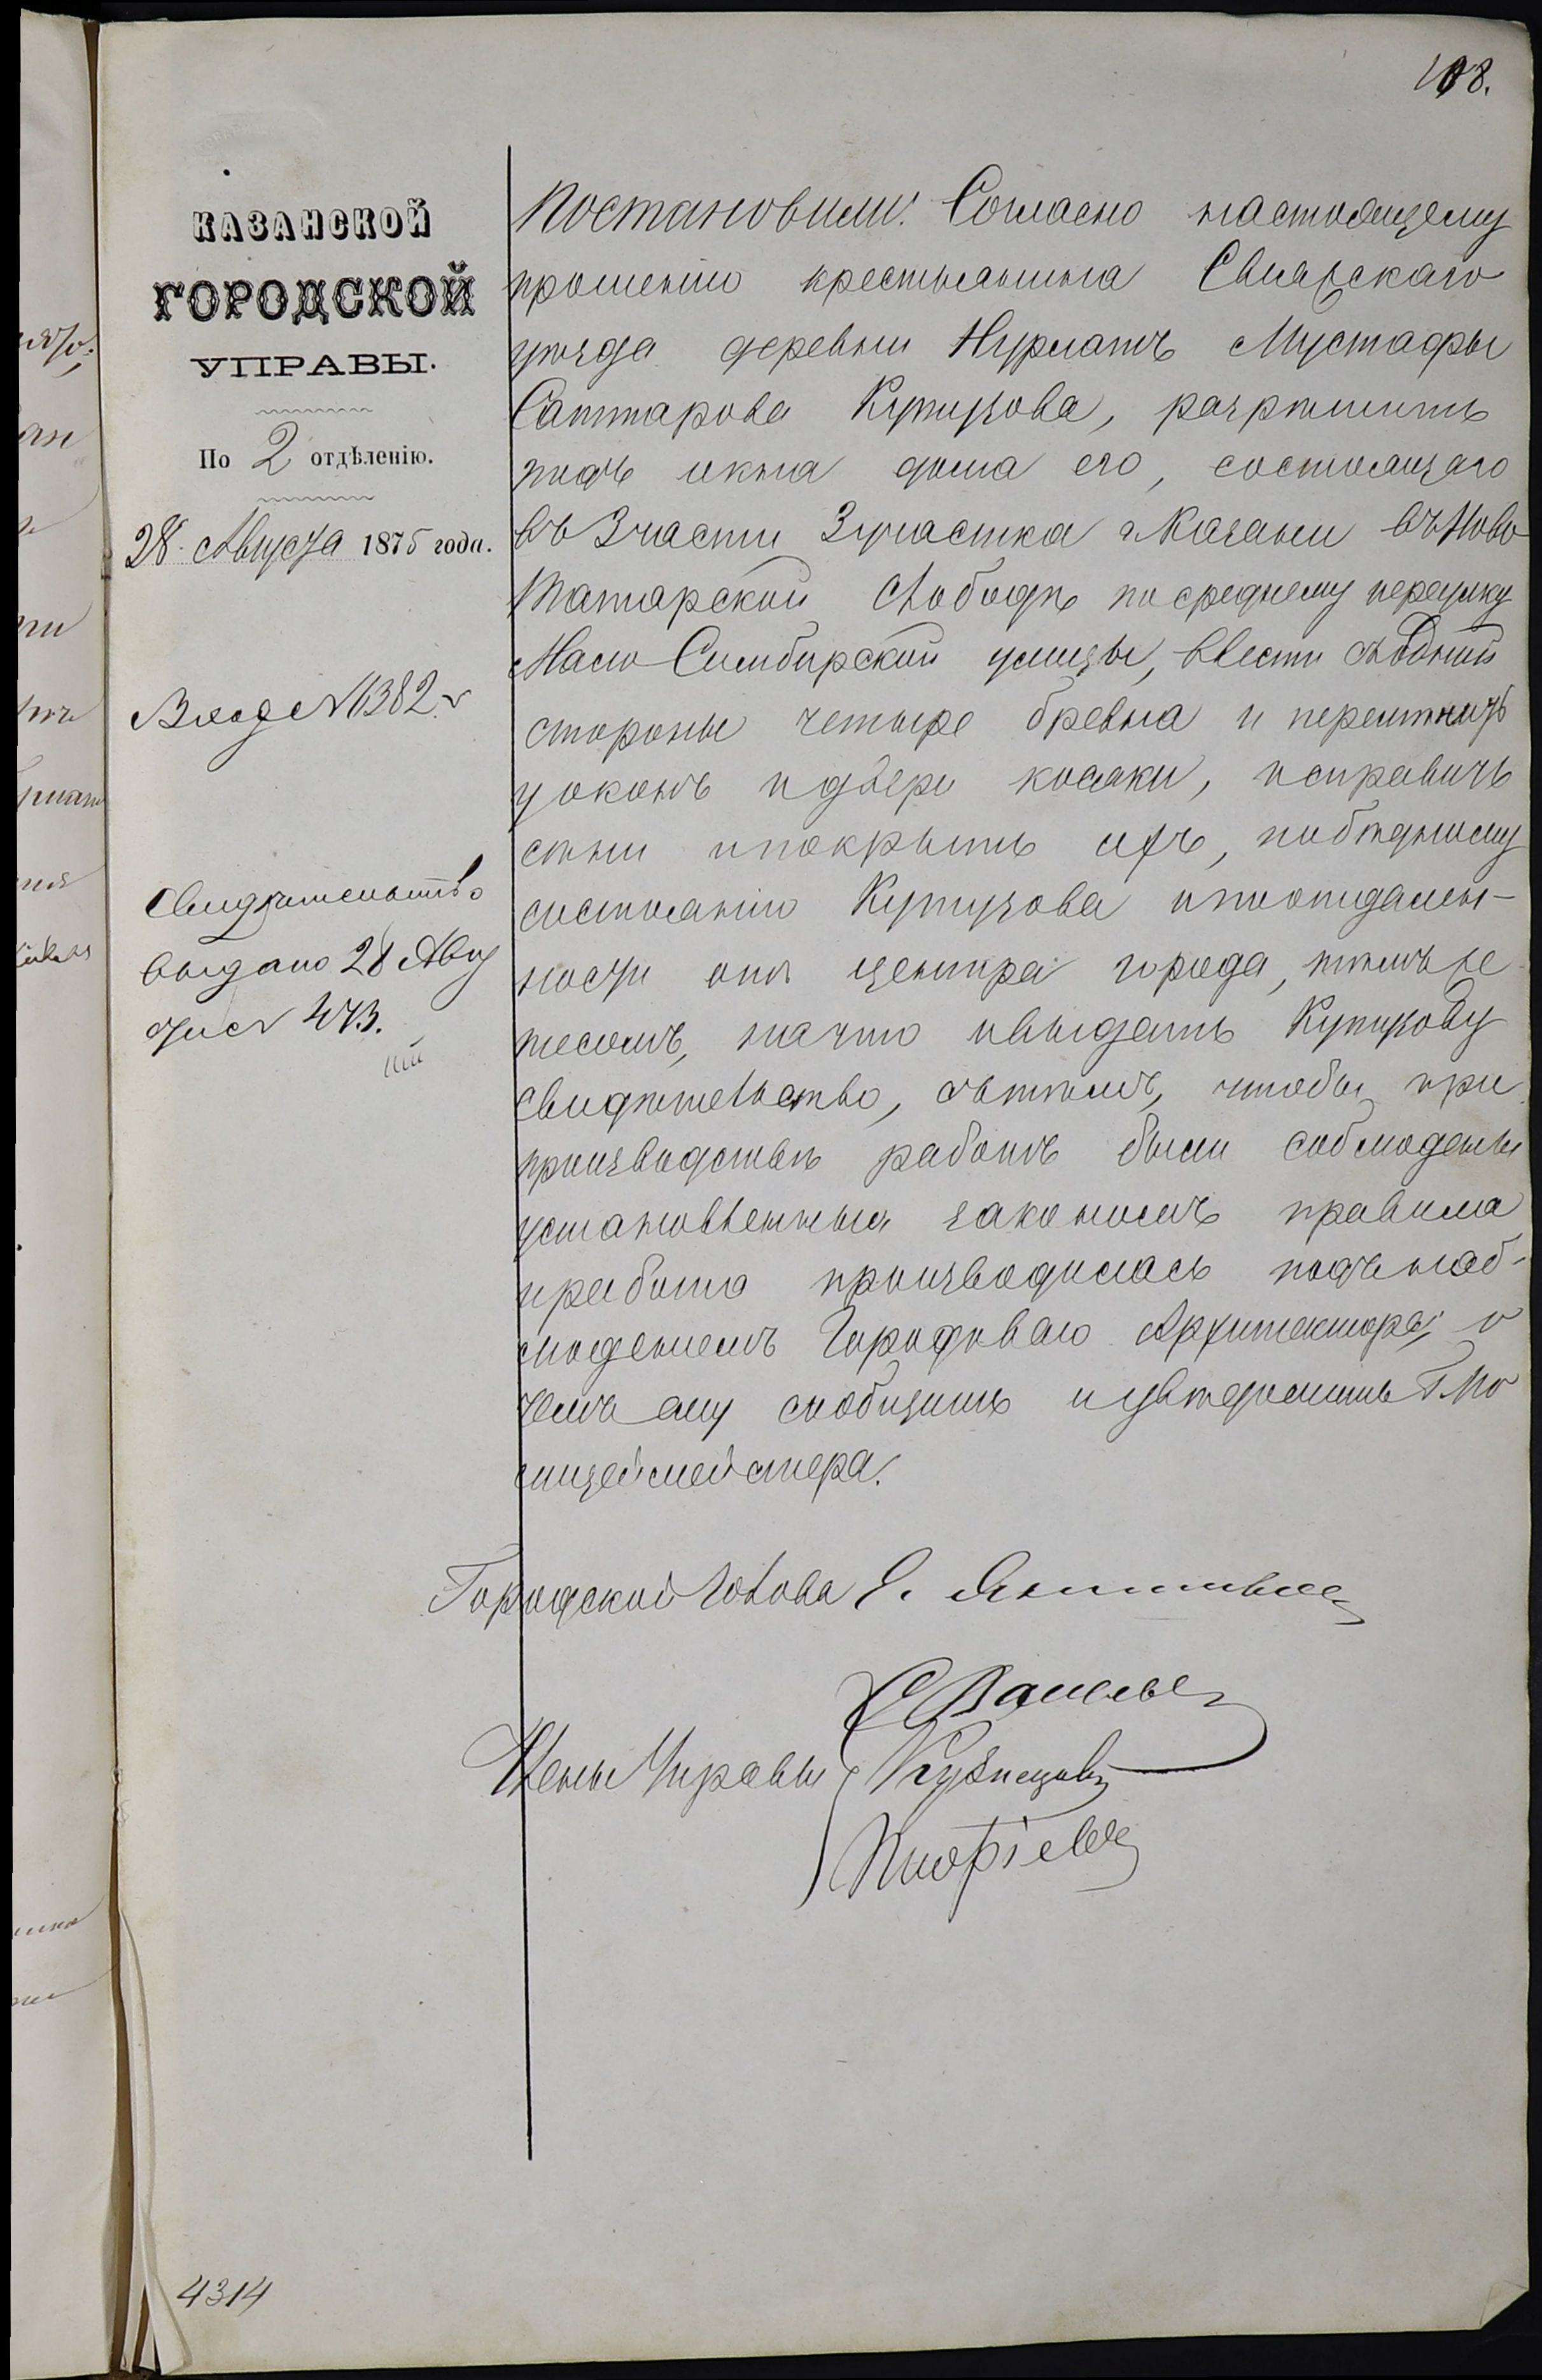 108.
КАЗАНСКОЙ
ГОРОДСКОЙ
УПРАВЫ.
По 2 отдѣленію.
28 Августа 1875 года.
Вход № 6382
Свидѣтельство
выдано 28 Авгу
ста № 473.
Постановили: Согласно настоящему
прошенію крестьянина Свіяжскаго
уѣзда деревни Нурлатъ Мустафы
Саттарова Кутузова, разрѣшить
подъ окна дома его, состоящаго
въ 3 части 3 участка г. Казани въ Ново
Татарской слободѣ по среднему переулку
Мало Симбирской улицы, ввести съ одной
стороны четыре бревна и перемѣнить
у оконъ и двери косяки, исправить
сѣни и покрыть ихъ, по бѣдному
состоянію Кутузова и по отдален-
ности отъ центра города, тѣмъ же
тесомъ, на что и выдать Кутузову
свидѣтельство, съ тѣмъ, чтобы при
производствѣ работъ были соблюдены
установленныя закономъ правила
и работа производилась подъ наб-
люденіемъ Городоваго Архитектора, о
чемъ ему сообщить и увѣдомить Г. По
лицеймейстера.
Городской Голова Э. Янишевск
С Васильев
Члены Управы Кузнецовъ
4314